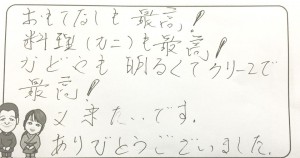 おもてなしも最高!
料理(カニ)も最高!
などやも明るくてクリーンで
最高!
又来たいです。
ありがとうございました。